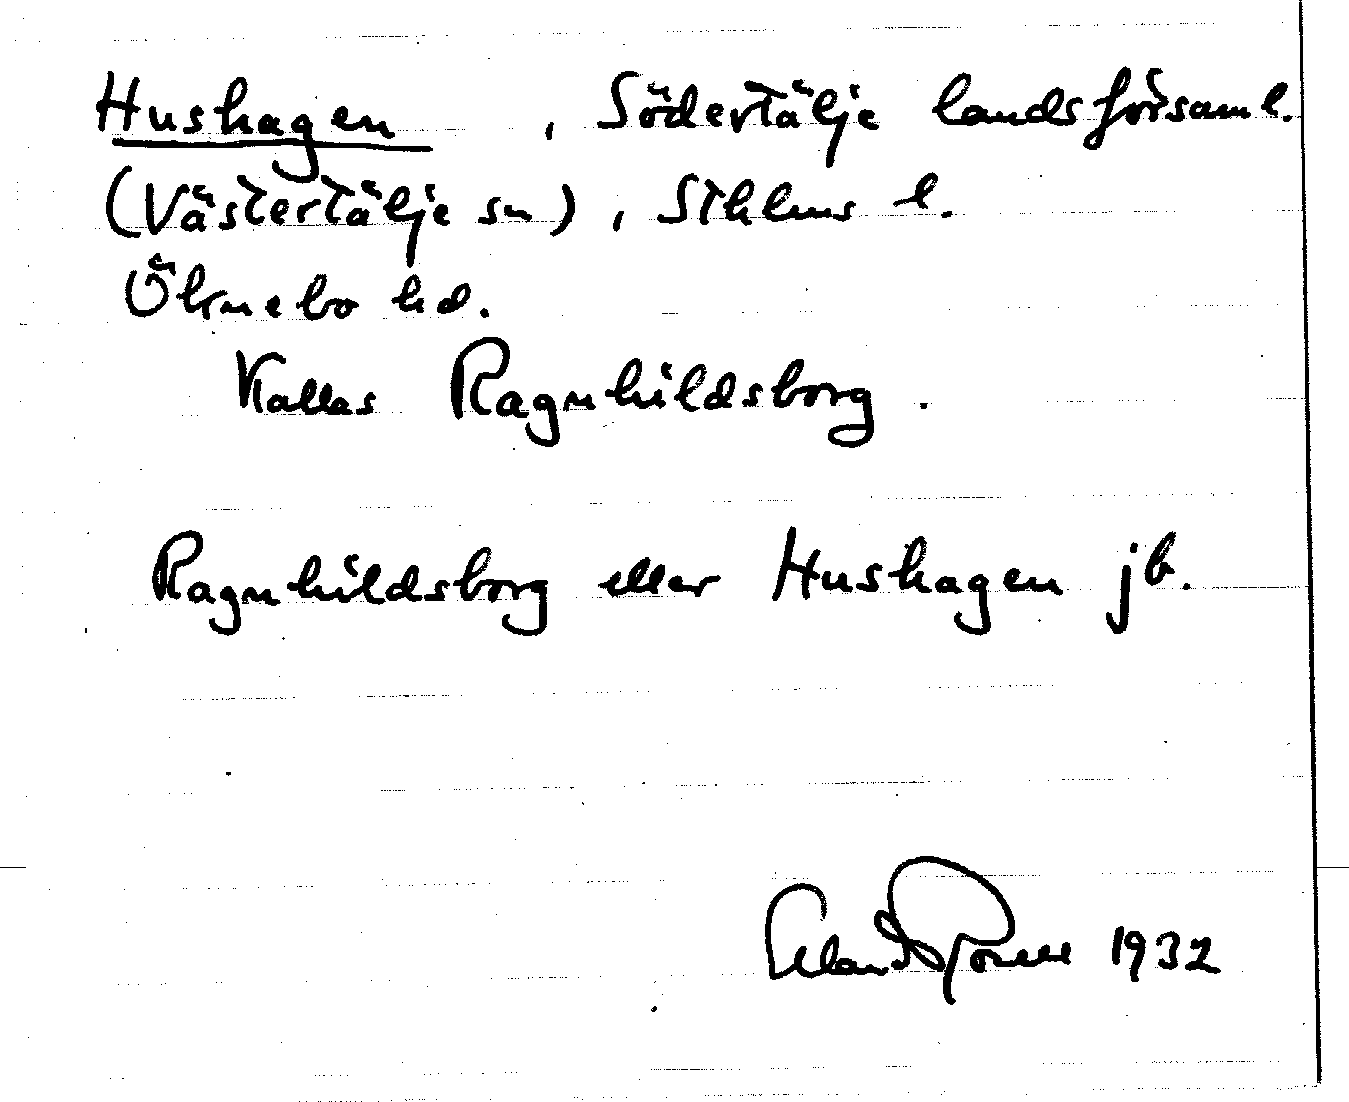 Hushagen, Södertälje landsförsaml.
(Västertälje sn), Sthlms l.
Öknebo hd.
Kallas Ragnhildsborg.
Ragnhildsborg eller Hushagen jb.
1932